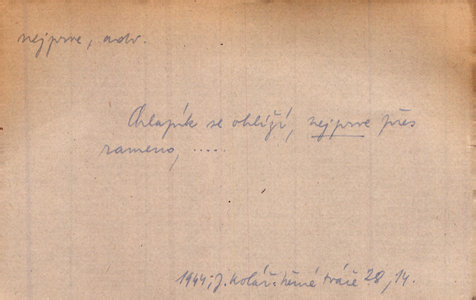 nejprve, adv.
Chlapík se ohlíží, nejprve přes
rameno, .....
1944; J. Kolář: Němé tváře 28, 14.